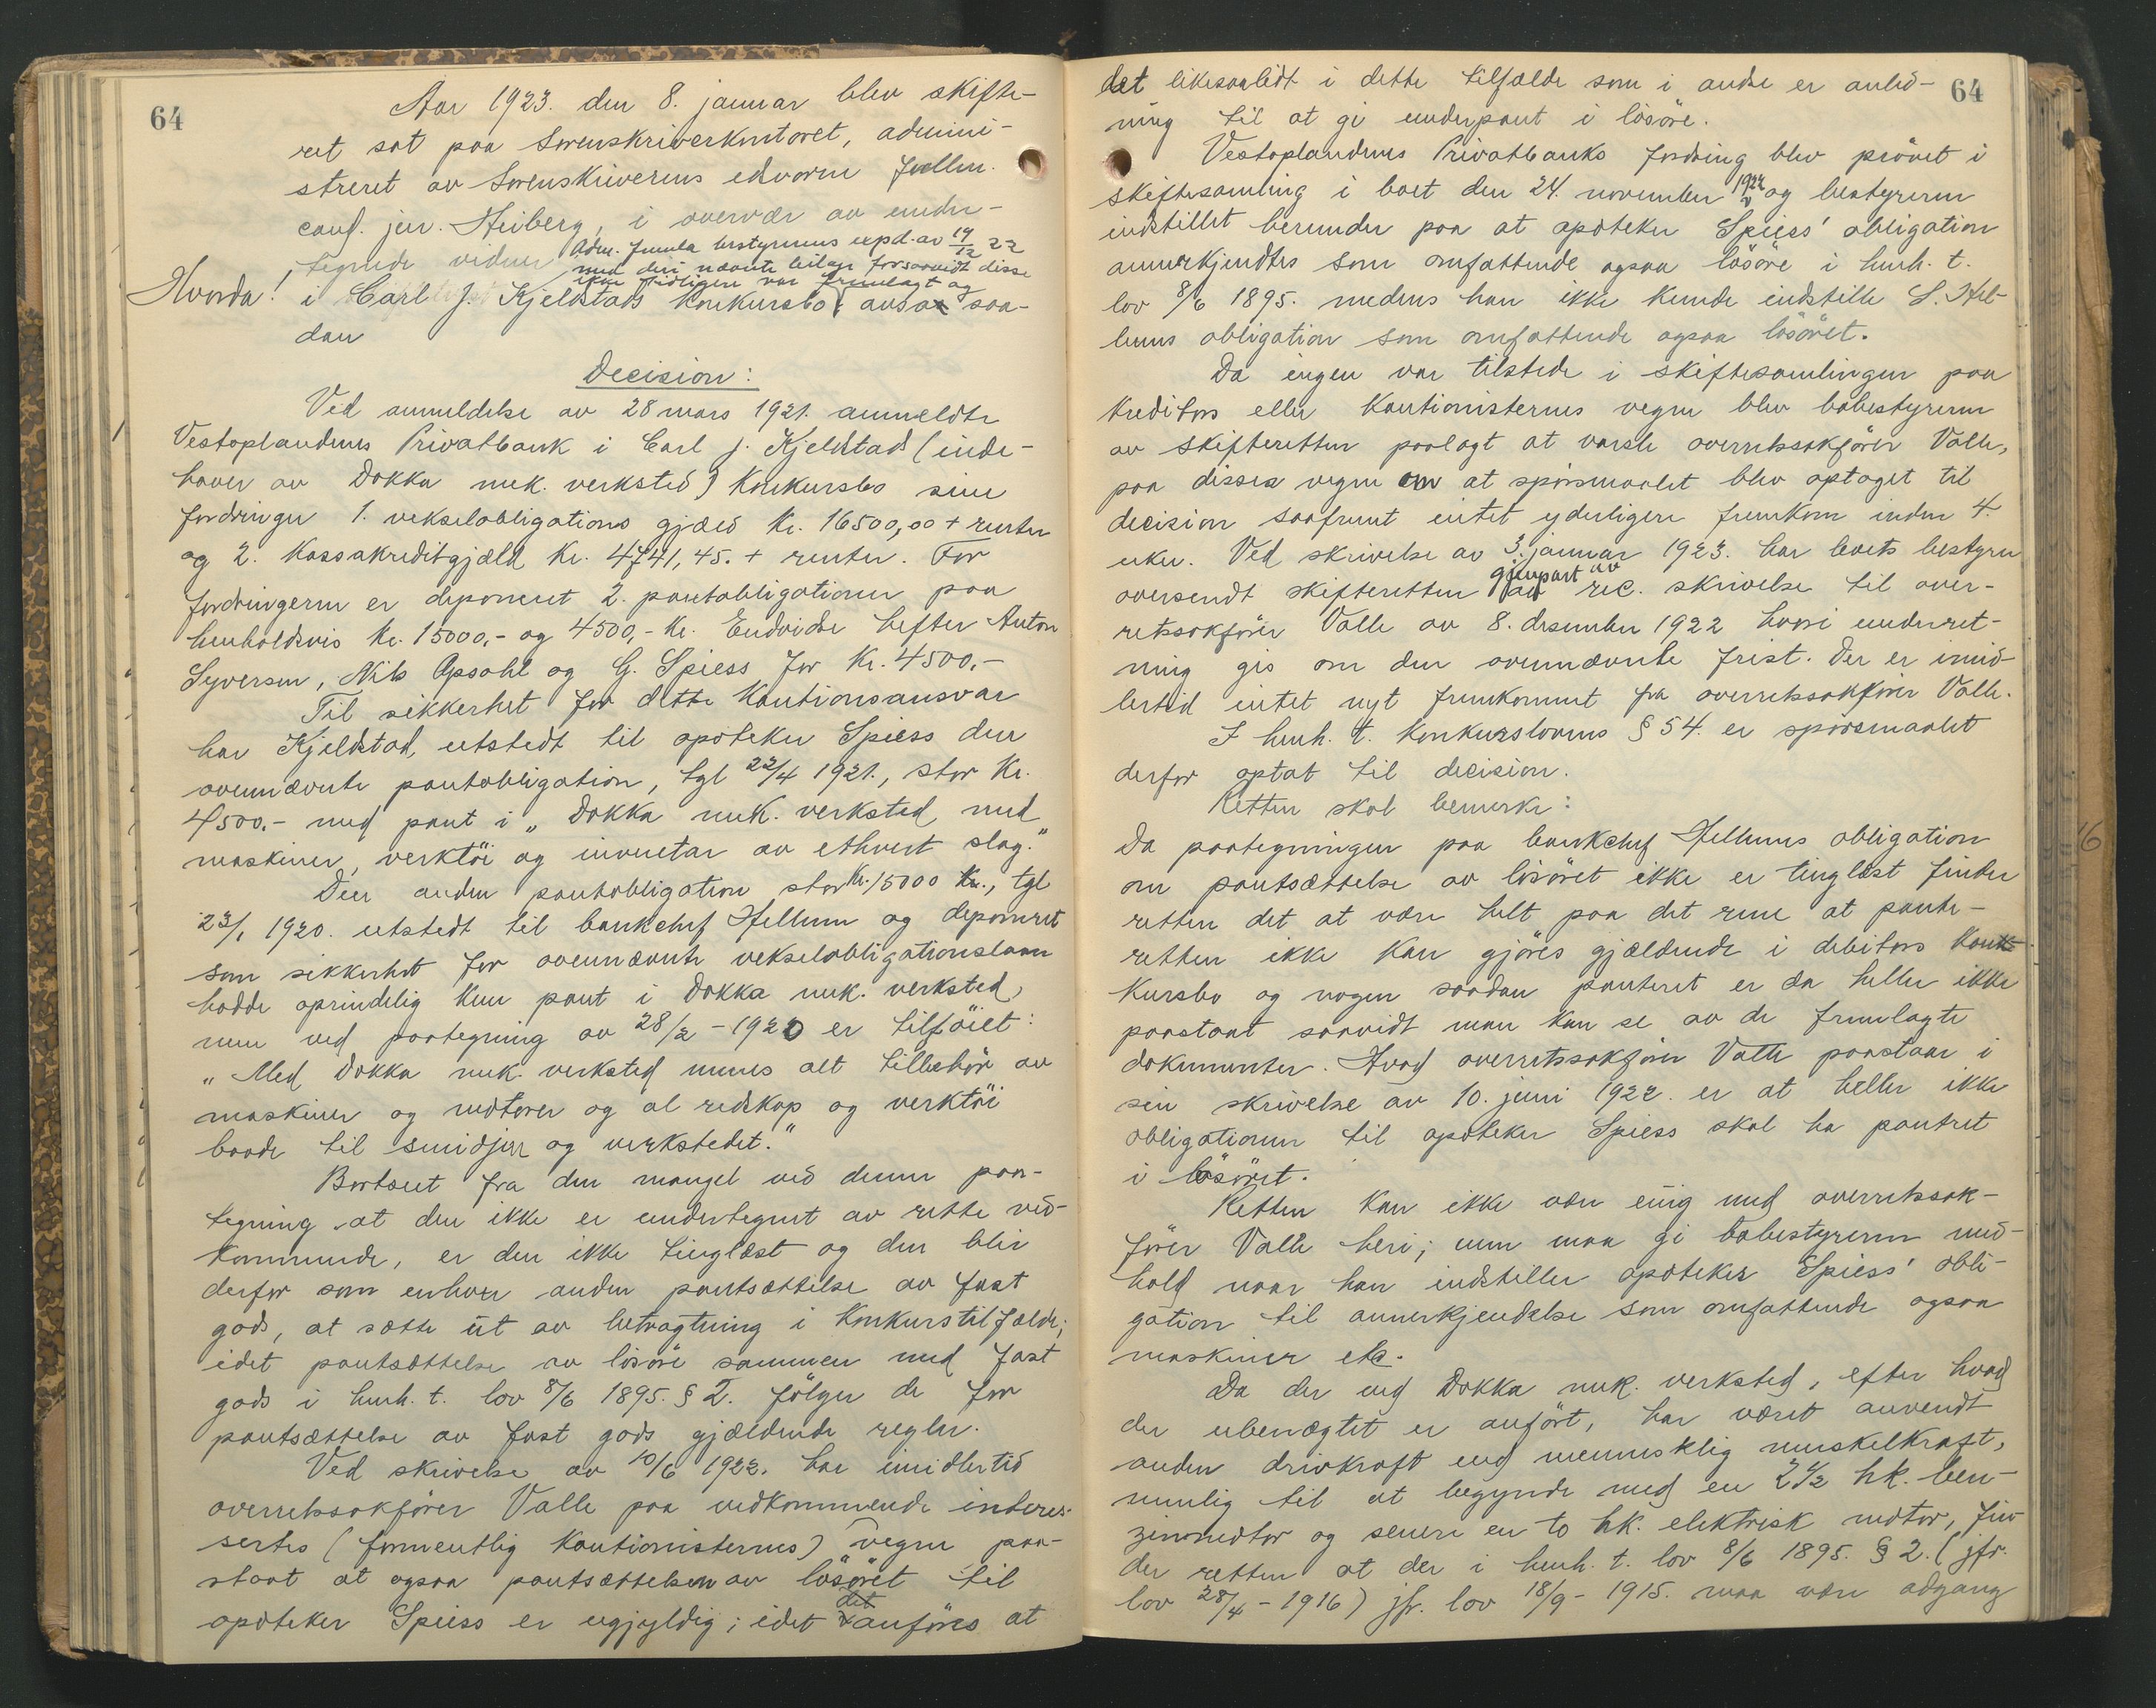 64
Aar 1923. den 8. januar blev skifte-
ret sat paa Sorenskriverkontoret, admini-
streret av Sorenskriverens edsvorne fuldm.
cand. jur. Heiberg, i overvær av under-
tegnede vidner
Adm. fremla bestyrerens expd. av 19/12 22
med deri nævnte bilage forsaavidt disse
ikke tidligere var fremlagt og
Hvorda!
i Carl J. Kjeldstads konkursbo avsa saa-
dan
Decision:
Ved anmeldelse av 28 mars 1921. anmeldte
Vestoplandenes Privatbank i Carl J. Kjeldstad (inde-
haver av Dokka mek. verksted) konkursbo sine
fordringer 1. vekselobligations gjæld kr. 16500,00 + renter
og 2. Kassakreditgjæld kr. 4741,45. + renter. For
fordringerne er deponeret 2. pantobligationer paa
henholdsvis kr. 15000,- og 4500,- kr. Endvidere hefter Anton
Syversen, Nils Opsahl og G. Spiess for kr. 4500.-
Til sikkerhet for dette kautionsansvar
har Kjeldstad, utstedt til apoteker Spiess den
ovennævnte pantobligation, tgl 22/4 1921., stor kr.
4500.- med pant i „Dokka mek. verksted med
maskiner, verktöi og inventar av ethvert slag."
Den anden pantobligation stor kr. 15000 kr., tgl
23/1 1920. utstedt til bankchef Hellum og deponeret
som sikkerhet for ovennævnte vekselobligationslaan
hadde oprindelig kun pant i Dokka mek. verksted,
men ved paategning av 28/2 - 1920 er tilföiet:
„Med Dokka mek. verksted menes alt tilbehör av
maskiner og motorer og al redskap og verktöi
baade til smidjen og verkstedet."
Bortseet fra den mangel ved denne paa-
tegning at den ikke er undertegnet av rette ved-
kommende, er den ikke tinglæst og den blir
derfor som enhver anden pantsættelse av fast
gods, at sætte ut av betragtning i konkurstilfælde;
idet pantsættelse av lösöre sammen med fast
gods i henh. t. lov 8/6 1895. § 2. fölger de for
pantsættelse av fast gods gjældende regler.
Ved skrivelse av 10/6 1922. har imidlertid
overretssakförer Valle paa vedkommende interes-
sertes (formentlig kautionisternes) vegne paa-
staat at ogsaa pantsættelsen av lösöret til
apoteker Spiess er ugyldig; idet det anföres at
64
det likesaalidt i dette tilfælde som i andre er anled-
ning til at gi underpant i lösöre.
Vestoplandenes Privatbanks fordring blev prövet i
skiftesamling i boet den 24. november 1922 og bestyreren
indstillet herunder paa at apoteker Spiess' obligation
anerkjendtes som omfattende ogsaa lösöre i henh. t.
lov 8/6 1895. medens han ikke kunde indstille S. Hel-
lums obligation som omfattende ogsaa lösöret.
Da ingen var tilstede i skiftesamlingen paa
kreditors eller kautionisternes vegne blev bobestyreren
av skifteretten paalagt at varsle overretssakförer Valle,
paa disses vegne om at spörsmaalet blev optaget til
decision saafremt intet yderligere fremkom inden 4.
uker. Ved skrivelse av 3. januar 1923. har boets bestyrer
oversendt skifteretten gjenpart av rec. skrivelse til over-
retssakförer Valle av 8. desember 1922 hvori underret-
ning gis om den ovennævnte frist. Der er imid-
lertid intet nyt fremkommet fra overretssakförer Valle.
I henh. t. konkurslovens § 54. er spörsmaalet
derfor optat til decision.
Retten skal bemerke:
Da paategningen paa bankchef Hellums obligation
om pantsættelse av lösöret ikke er tinglæst finder
retten det at være helt paa det rene at pante-
retten ikke kan gjöres gjældende i debitors kon-
kursbo og nogen saadan panteret er da heller ikke
paastaat saavidt man kan se av de fremlagte
dokumenter. Hvad overretssakförer Valle paastaar i
sin skrivelse av 10. juni 1922. er at heller ikke
obligationen til apoteker Spiess skal ha pantret
i lösöret.
Retten kan ikke være enig med overretssak-
förer Valle heri; men maa gi bobestyreren med-
hold naar han indstiller apoteker Spiess' obli-
gation til annerkjendelse som omfattende ogsaa
maskiner etc.
Da der ved Dokka mek. verksted, efter hvad
der ubenægtet er anfört, har været anvendt
anden drivkraft end menneskelig muskelkraft,
nemlig til at begynde med en 2 1/2 hk. ben-
zinmotor og senere en to hk. elektrisk motor, fin-
der retten at der i henh. t. lov 8/6 1895. § 2. (jfr.
lov 28/4 - 1916) jfr. lov 18/9 - 1915. maa være adgang
16